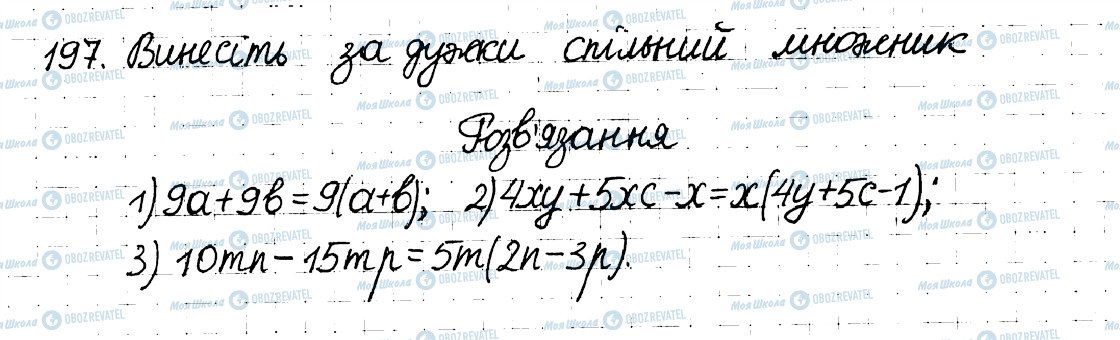 197. Винесіть за дужки спільний множник
Розв'язання
1) 9a+9b=9(a+b); 2) 4xy+5xc-x=x(4y+5c-1);
3) 10mn-15mp=5m(2n-3p).